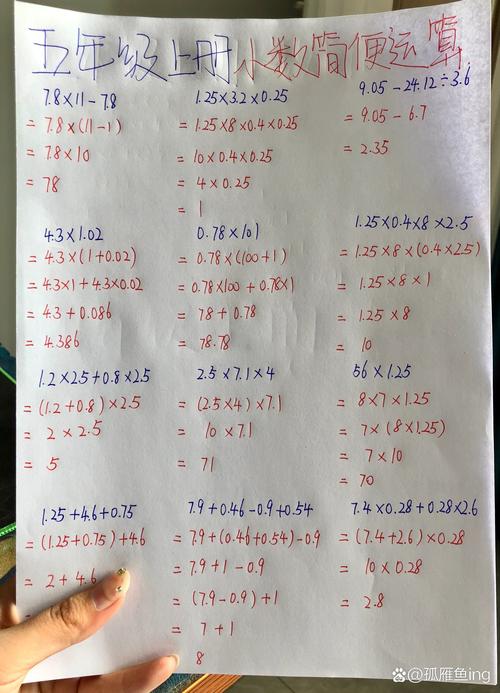 五年级上册小数简便运算
7.8×11-7.8
=7.8×(11-1)
=7.8×10
=78
1.25×3.2×0.25
=1.25×8×0.4×0.25
=10×0.4×0.25
=4×0.25
=1
9.05-24.12÷3.6
=9.05-6.7
=2.35
4.3×1.02
=4.3×(1+0.02)
=4.3×1+4.3×0.02
=4.3+0.086
=4.386
0.78×101
=0.78×(100+1)
=0.78×100+0.78×1
=78+0.78
=78.78
1.25×0.4×8×2.5
=1.25×8×(0.4×2.5)
=1.25×8×1
=1.25×8
=10
1.2×2.5+0.8×2.5
=(1.2+0.8)×2.5
=2×2.5
=5
2.5×7.1×4
=(2.5×4)×7.1
=10×7.1
=71
56×1.25
=8×7×1.25
=7×(8×1.25)
=7×10
=70
1.25+4.6+0.75
=(1.25+0.75)+4.6
=2+4.6
7.9+0.46-0.9+0.54
=7.9+(0.46+0.54)-0.9
=7.9+1-0.9
=(7.9-0.9)+1
=7+1
8
7.4×0.28+0.28×2.6
=(7.4+2.6)×0.28
=10×0.28
=2.8
百家号@孤雁鱼ing